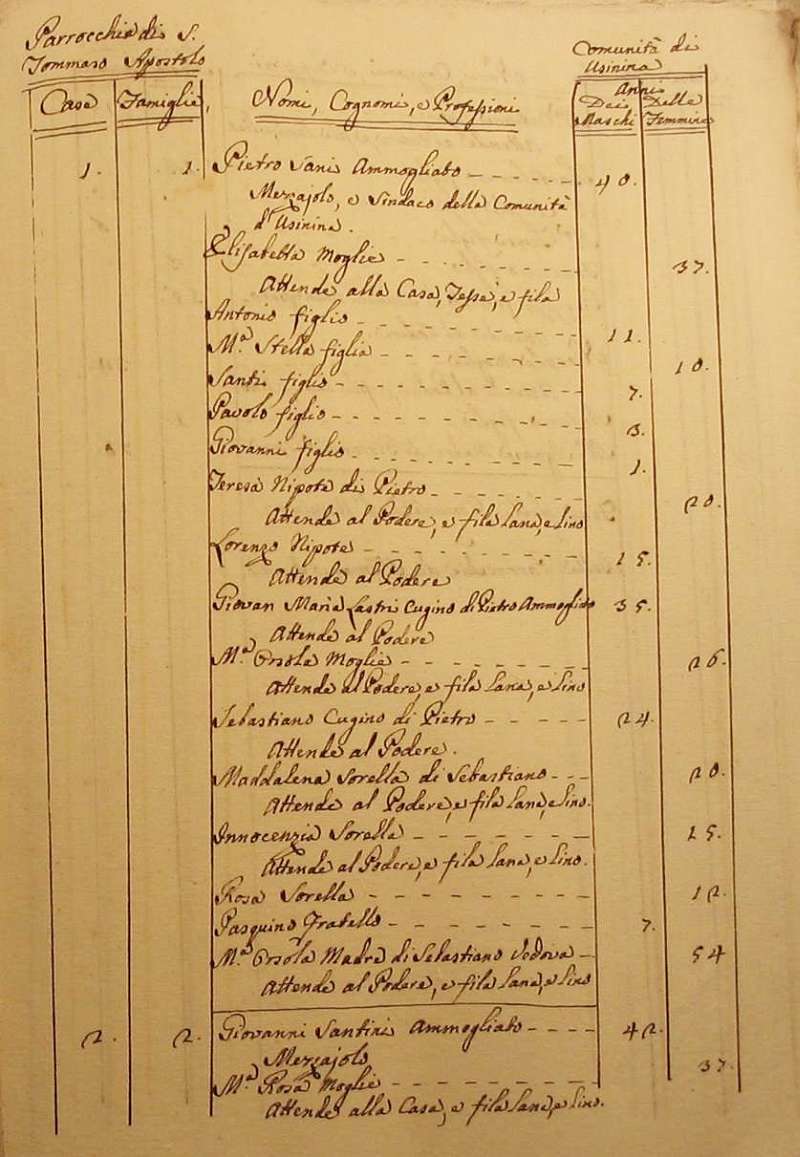 Parrocchia di S.
Tommaso Apostolo
Comunità di
Usinina
Case
Famiglie
Nomi, Cognomi, e Professioni
Anni
Dei Maschi
Delle Femmine
1. 1. Pietro Sani Ammogliato 40.
Mezzajolo, e Sindaco della Comunità
d'Usinina.
Elisabetta Moglie 37.
Attende alla Casa, Tesse, e fila
Antonio figlio 11.
M.a Stella figlia 10.
Santi figlio 7.
Pavolo figlio 3.
Giovanni figlio 1.
Teresa Nipote di Pietro 20.
Attende al Podere, e fila Lana, e Lino
Lorenzo Nipote 15.
Attende al Podere
Giovan Maria Lastri Cugino di Pietro Ammogliato 35.
Attende al Podere
M.a Orsola Moglie 26.
Attende al Podere, e fila Lana, e Lino
Sebastiano Cugino di Pietro 24.
Attende al Podere.
Maddalena Sorella di Sebastiano 20.
Attende al Podere, e fila Lana, e Lino.
Innocenzia Sorella 15.
Attende al Podere, e fila Lana, e Lino.
Rosa Sorella 12.
Pasquino Fratello 7.
M.a Orsola Madre di Sebastiano Vedova 54
Attende al Podere, e fila Lana, e Lino
2. 2. Giovanni Santini Ammogliato 42.
Mezzajolo
M.a Rosa Moglie 37.
Attende alla Casa, e fila Lana, e Lino.